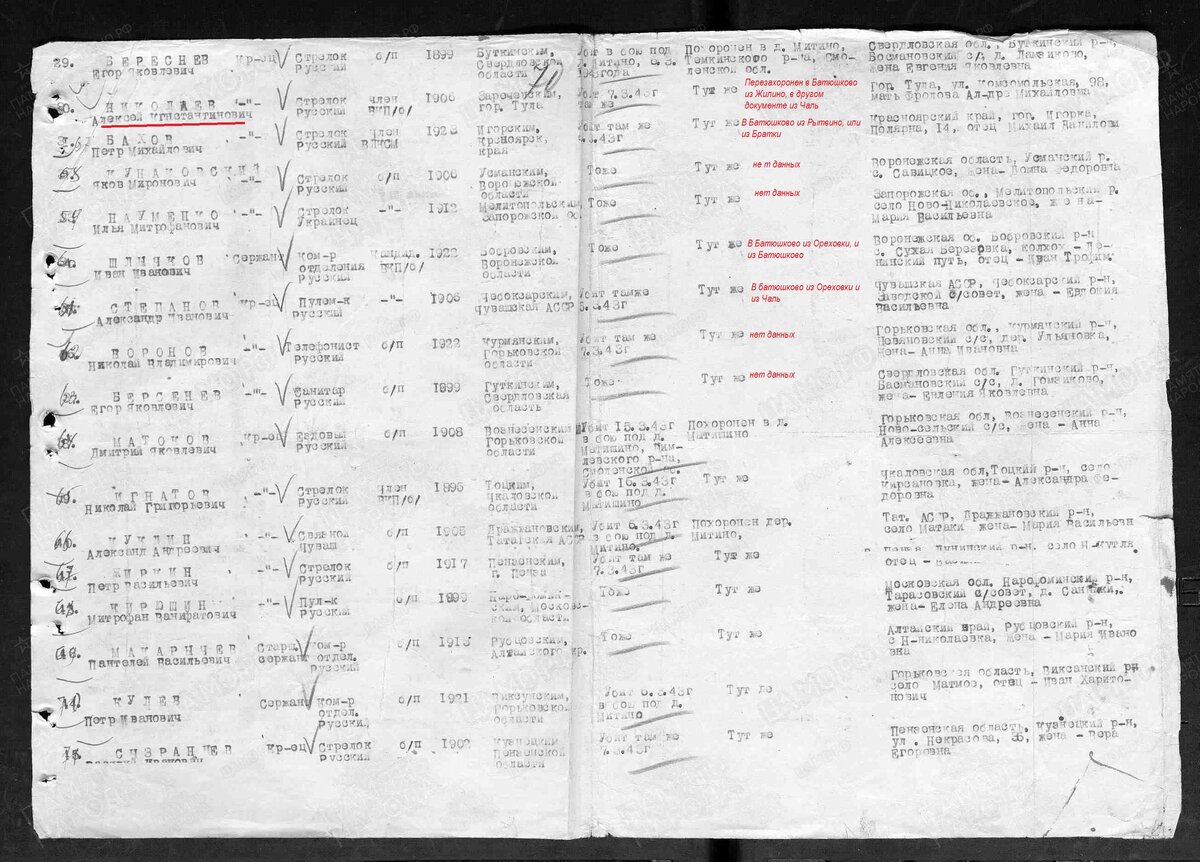 29. БЕРЕСНЕВ Кр-ец Стрелок б/п 1899 Буткинским, Убит в бою под Похоронен в д. Митино, Свердловская обл., Буткинский р-н,
Егор Яковлевич Русский Свердловской Митино, Темкинского р-на, Смо- Босмановский с/с
области 70 ленской обл. жена Евгения Яковлевна
НИКОЛАЕВ -"- Стрелок член 1906 Зареченским, Убит 7.3.43г Тут же Перезахоронен в Батюшково Гор. Тула, ул. Комсомольская, 98,
Алексей Кнстантинович Русский ВКП/б/ гор. Тула там же из Жилино, в другом мать Фролова Ал-дра Михайловна
документе из Чаль
БАХОВ -"- Стрелок Член 1923 Игорским, Убит там же Тут же В Батюшково из Рытвино, или Красноярский край, гор. Игорка,
Петр Михайлович Русский ВЛКСМ Крсноярск, .3.43г из Братки Полярна, 14, отец Михаил Данилови
края
КУНАКОВСКИЙ -"- Стрелок б/п 1906 Усманским, Тоже Тут же не т данных Воронежская область, Усманский р.
Яков Миронович Русский Воронежской с. Савицкое, жена- Домна Федоровна
области
НАУМЕНКО -"- Стрелок -"- 1912 Мелитопольским, Тоже Тут же нет данных Запорожская об., Мелитопольский р.
Илья Митрофанович Украинец Запорожской об. село Ново-Николаевское, жена-
Мария Васильевна
ШЛЫЧКОВ Сержант Ком-р Кандид. 1922 Бобровским, Тоже Тут же В Батюшково из Ореховки, и Воронежская об. Бобровский р-н
Иван Иванович отделения ВКП/б/ Воронежской из Батюшково с. Сухая Березовка, колхоз - Ле-
Русский области нинский путь, отец - Иван Трофим
СТЕПАНОВ кр-ец Пулем-к -"- 1906 Чебоксарским, Убит тамже Тут же В батюшково из Ореховки и Чувашская АССР, Чебоксарский р-н,
Александр Иванович русский Чувашская АССР 6.3.43г из Чаль Заводской с/совет, жена - Евдокия
Васильевна
62 ВОРОНОВ -"- Телефонист б/п 1922 Курмянским, Убит там же Тут же нет данных Горьковская обл., Курмянский р-н,
Николай Владимирович русский Горьковской 7.3.43г с/с, дер. Ульяновка,
области жена- Анна Ивановна
БЕРСЕНЕВ -"- Санитар б/п 1899 Гуткинским, Тоже Тут же нет данных Свердловская обл. Гуткинский р-н,
Егор Яковлевич Русский Свердловская Басмановский с/с, д. Гомзиково,
область жена- Евления Яковлевна
МАТОКОВ кр-ец Ездовый б/п 1908 Вознесенским Убит 15.3.43г Похоронен в д. Горьковская обл, Вознесенский р-н,
Дмитрий Яковлевич Русский Горьковской в бою под д. Матишино Ново-сельский с/с, жена - Анна
области Матишино, Алексеевна
р-на,
Смоленской об.
ИГНАТОВ -"- Стрелок Член 1896 Тоцким, Убит 16.3.43г Тут же Чкаловская обл,Тоцкий р-н, село
Николай Григорьевич Русский ВКП/б/ Чкаловской в бою под д. Кирсановка, жена-Александра Фе-
области Матишино доровна
КУКЛИН -"- Связной б/п 1905 Дражжановским, Убит 6.3.43г Похоронен дер. Тат. АССР, Дражжановский р-н,
Александ Андреевич Чуваш Татарская АССР в бою под д. Митино, село Матаки жена- Мария Васильевн
Митино.
ЖИРКИН -"- Стрелок б/п 1917 Пензенским, Убит там же Тут же
Петр Васильевич Русский г. Пенза 7.3.43г отец -
КИРЮШИН -"- Пул-к б/п 1899 Тоже Тут же Московская обл. Нарофоминский р-н,
Митрофан Русский Московс- Тарасовский с/совет,
кой области жена- Елена Андреевна
МАКАРИЧЕВ Старш. Ком-р б/п 1913 Рубцовским, Тоже Тут же Алтайский край, Рубцовский р-н,
Пантелей Васильевич сержант отдел. Алтайского кр. с Н-николаевка, жена - Мария Ивано
Русский вна
КУЛЕВ Сержант Ком-р б/п 1921 Виксунским, Убит 6.3.43г Тут ле Горьковская область, Виксанский рн
Петр Иванович отдел. Горьковской в бою под д. село Матмов, отец - Иван Харито-
Русски, области Митино нович
СЫЗРАНЦЕВ кр-ец Стрелок б/п 1902 Кузнецким Убит там же Тут же Пензенская область, Кузнецкий р-н,
Иванович Русский Пензенской 7.3.43г ул. Некрасова, 36, жена - Вера
области Егоровна